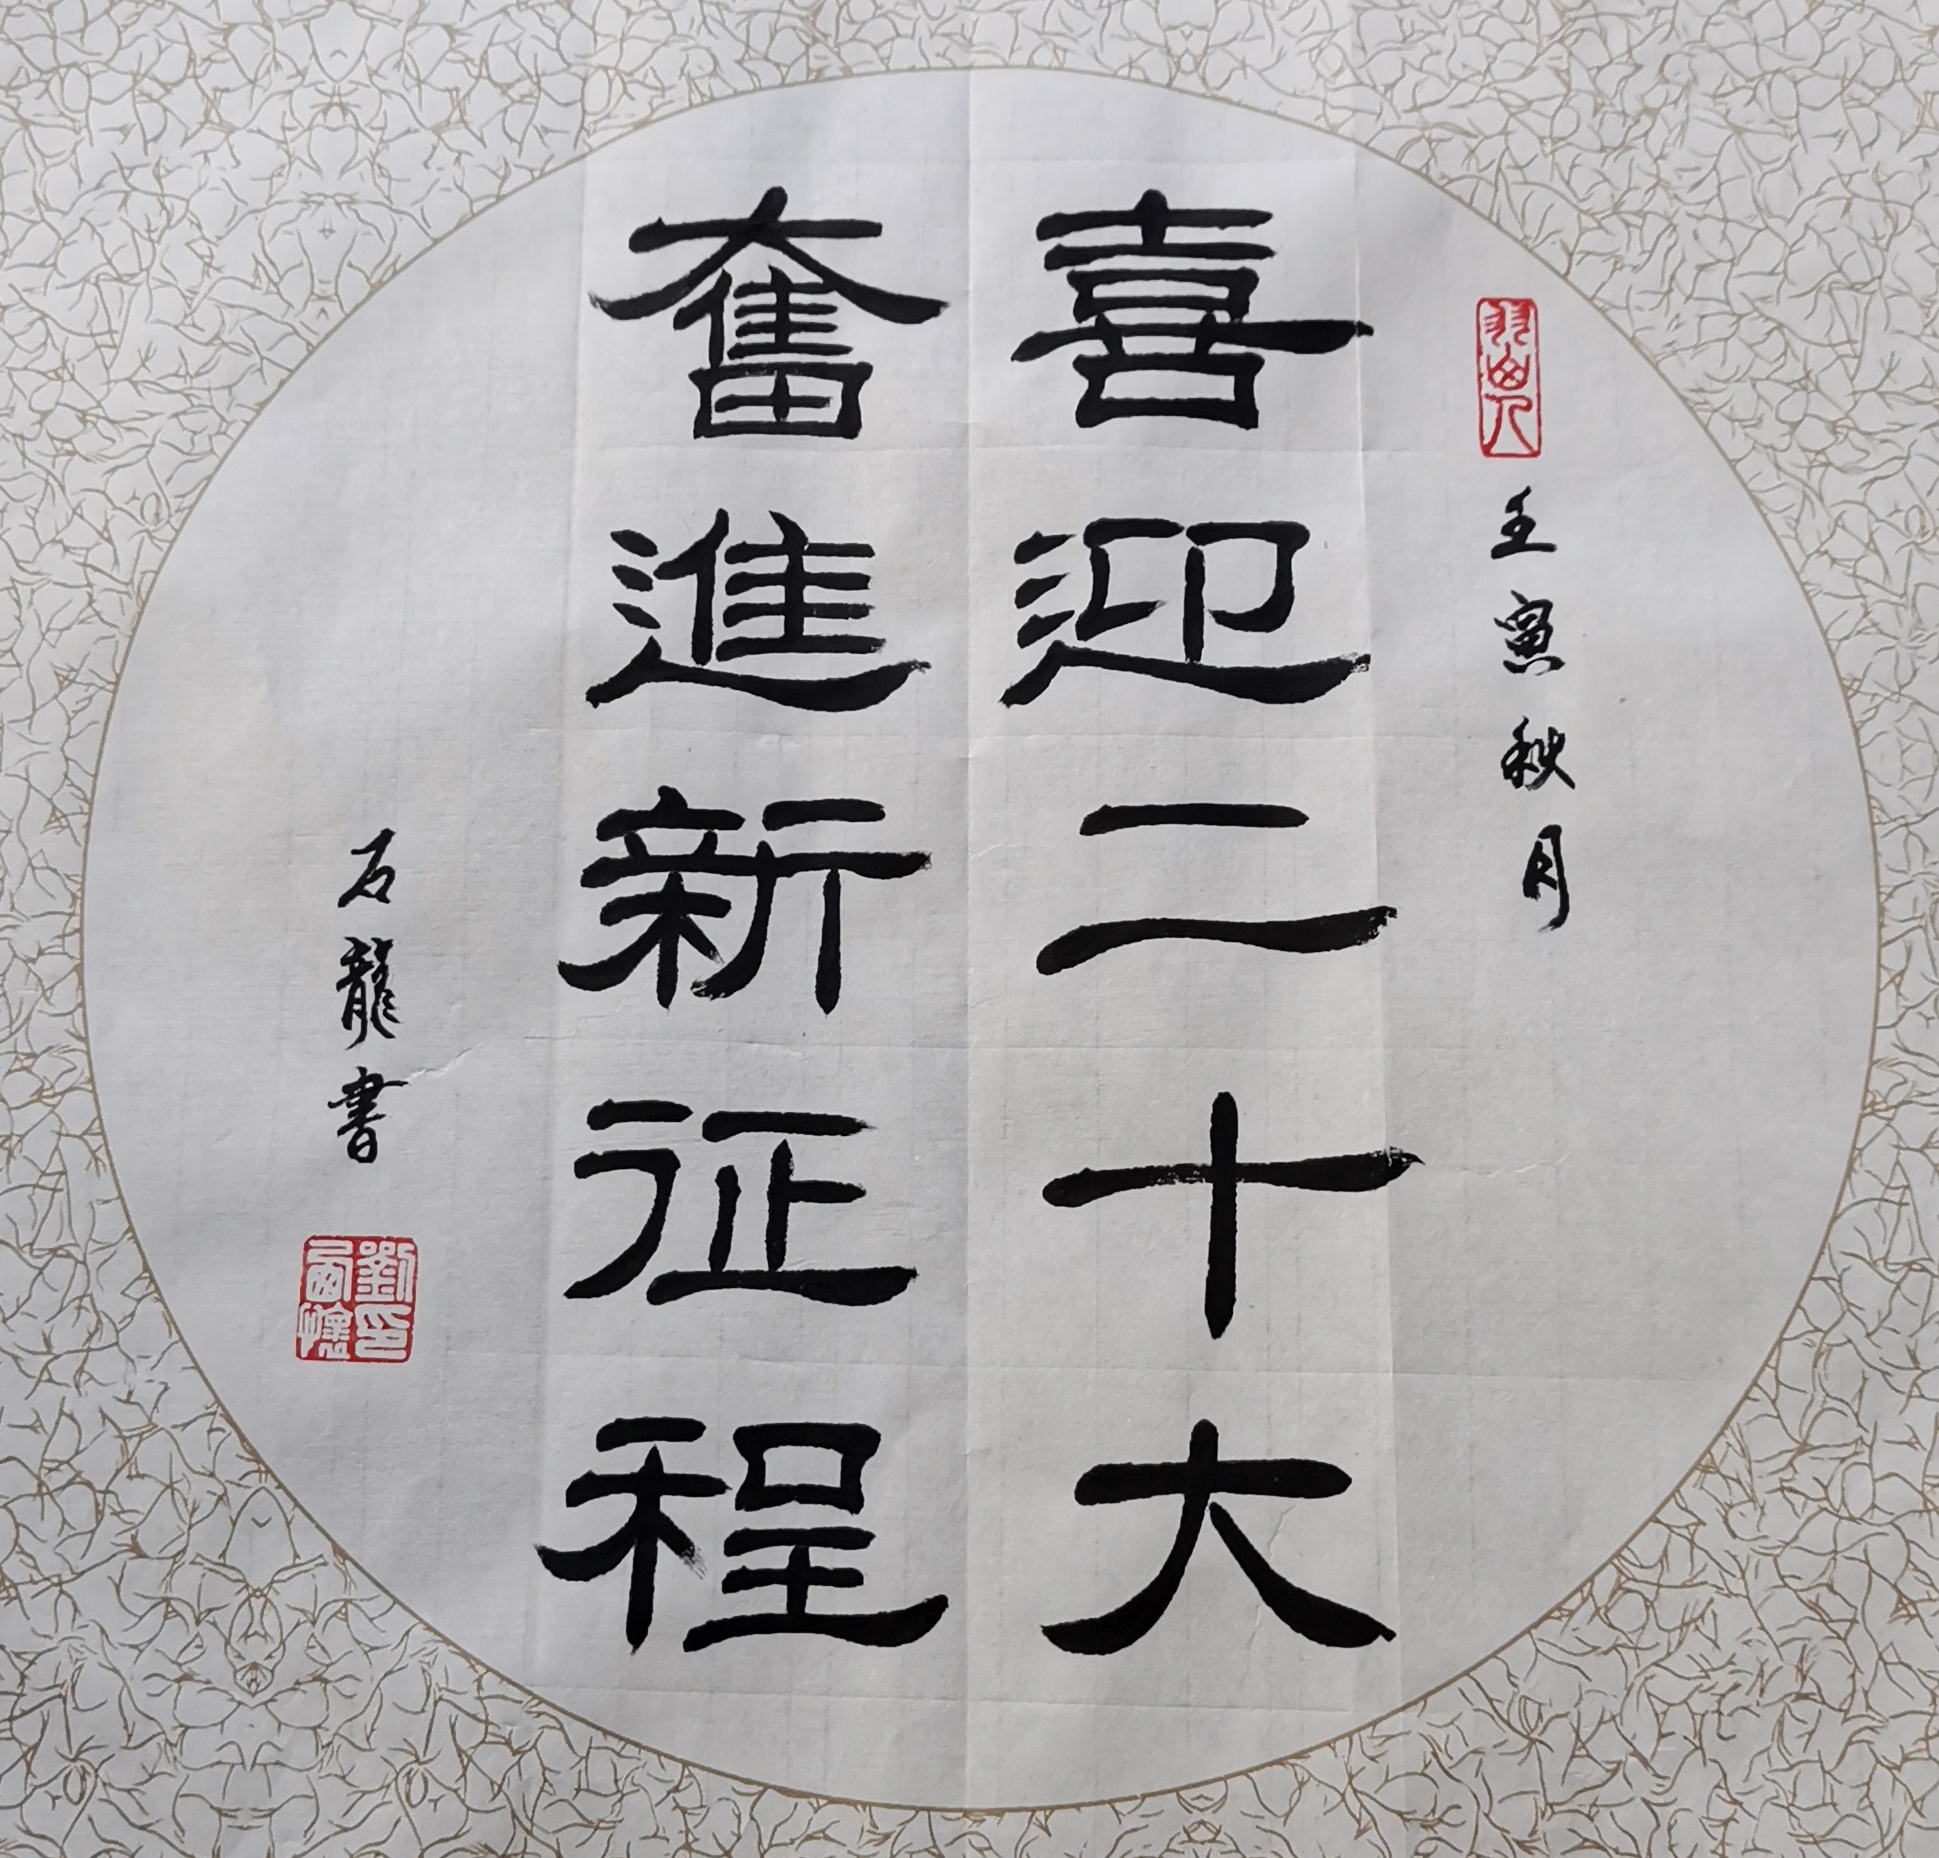 壬寅秋月
喜迎二十大
奮進新征程
石龍書